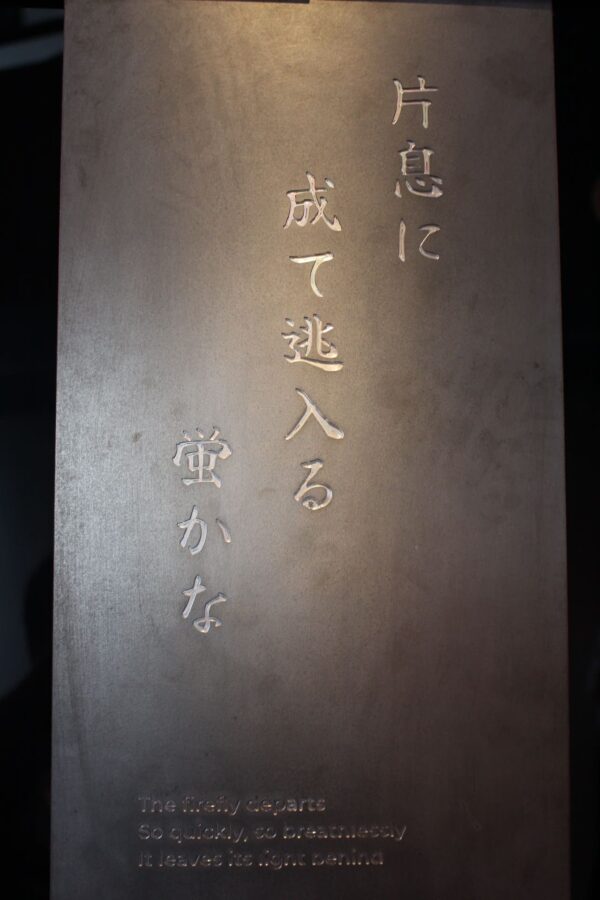 片息に
成て逃入る
蛍かな
The firefly departs
So quickly, so breathlessly
It leaves its light behind